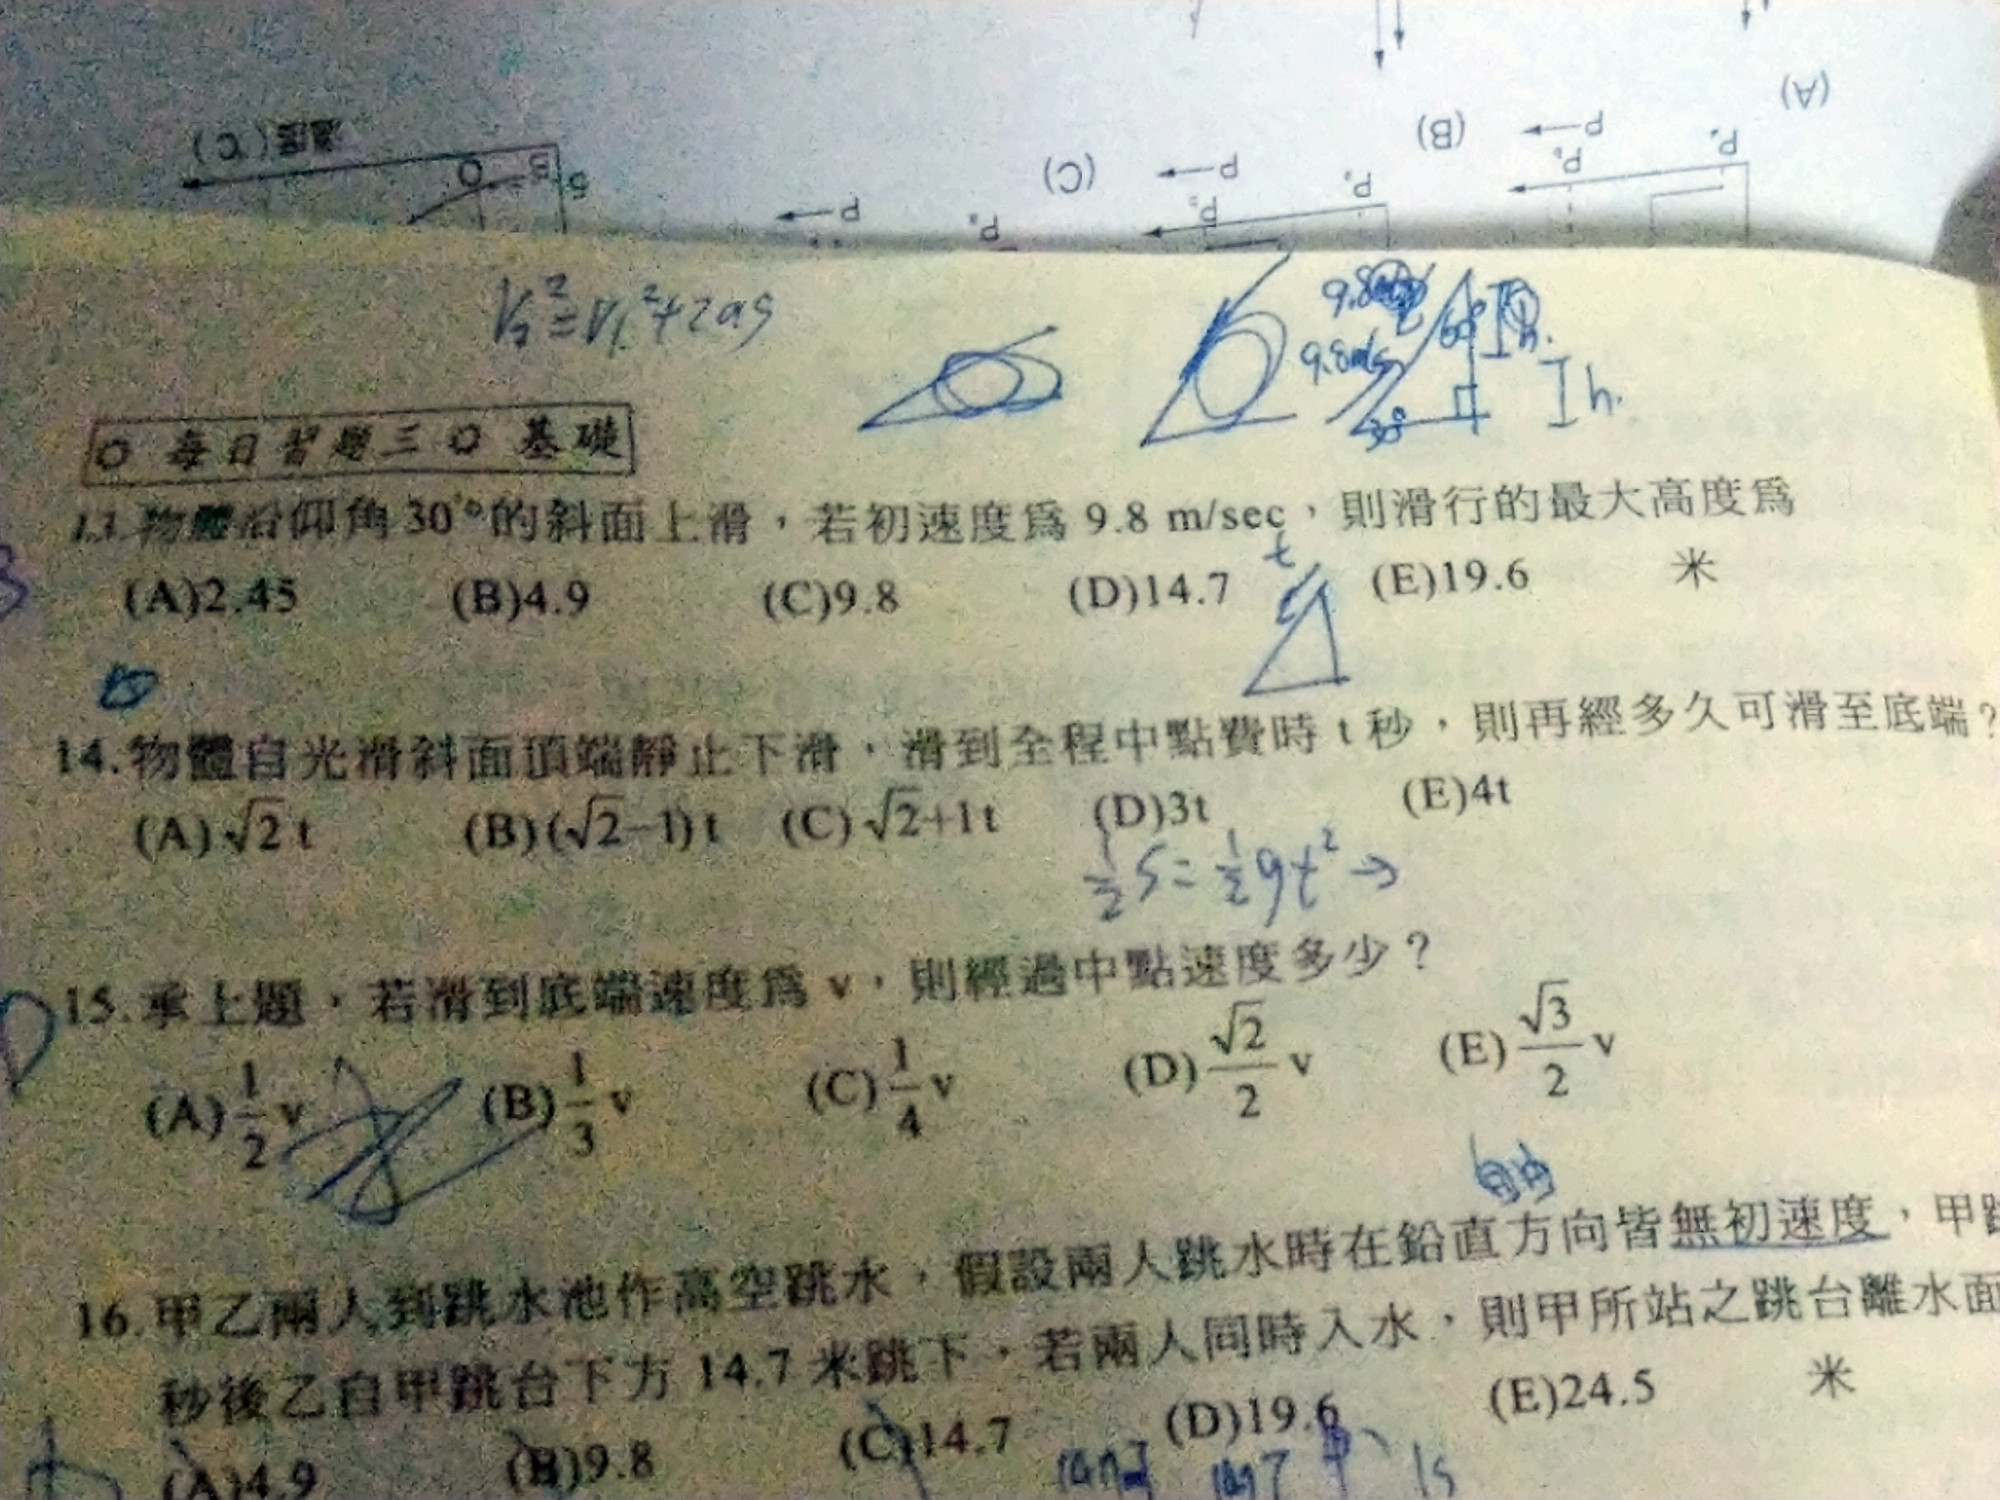 (A)
(B)
P
P
P
(C)
P
溫度(℃)
V₂²=V₁²+2as
9.8
9.8m/s
60°
h.
30°
h.
每日習題三 基礎
13.物體沿仰角30°的斜面上滑，若初速度爲9.8 m/sec，則滑行的最大高度爲
(A)2.45 (B)4.9 (C)9.8 (D)14.7 (E)19.6 米
t
14.物體自光滑斜面頂端靜止下滑，滑到全程中點費時 t 秒，則再經多久可滑至底端？
(A)√2 t (B)(√2−1) t (C)√2+1 t (D)3t (E)4t
1/2 S = 1/2 gt² →
D
15.承上題，若滑到底端速度爲 v，則經過中點速度多少？
(A) 1/2 v (B) 1/3 v (C) 1/4 v (D) √2/2 v (E) √3/2 v
16.甲乙兩人到跳水池作高空跳水，假設兩人跳水時在鉛直方向皆無初速度，甲跳
秒後乙自甲跳台下方 14.7 米跳下，若兩人同時入水，則甲所站之跳台離水面
(A)4.9 (B)9.8 (C)14.7 (D)19.6 (E)24.5 米
1s